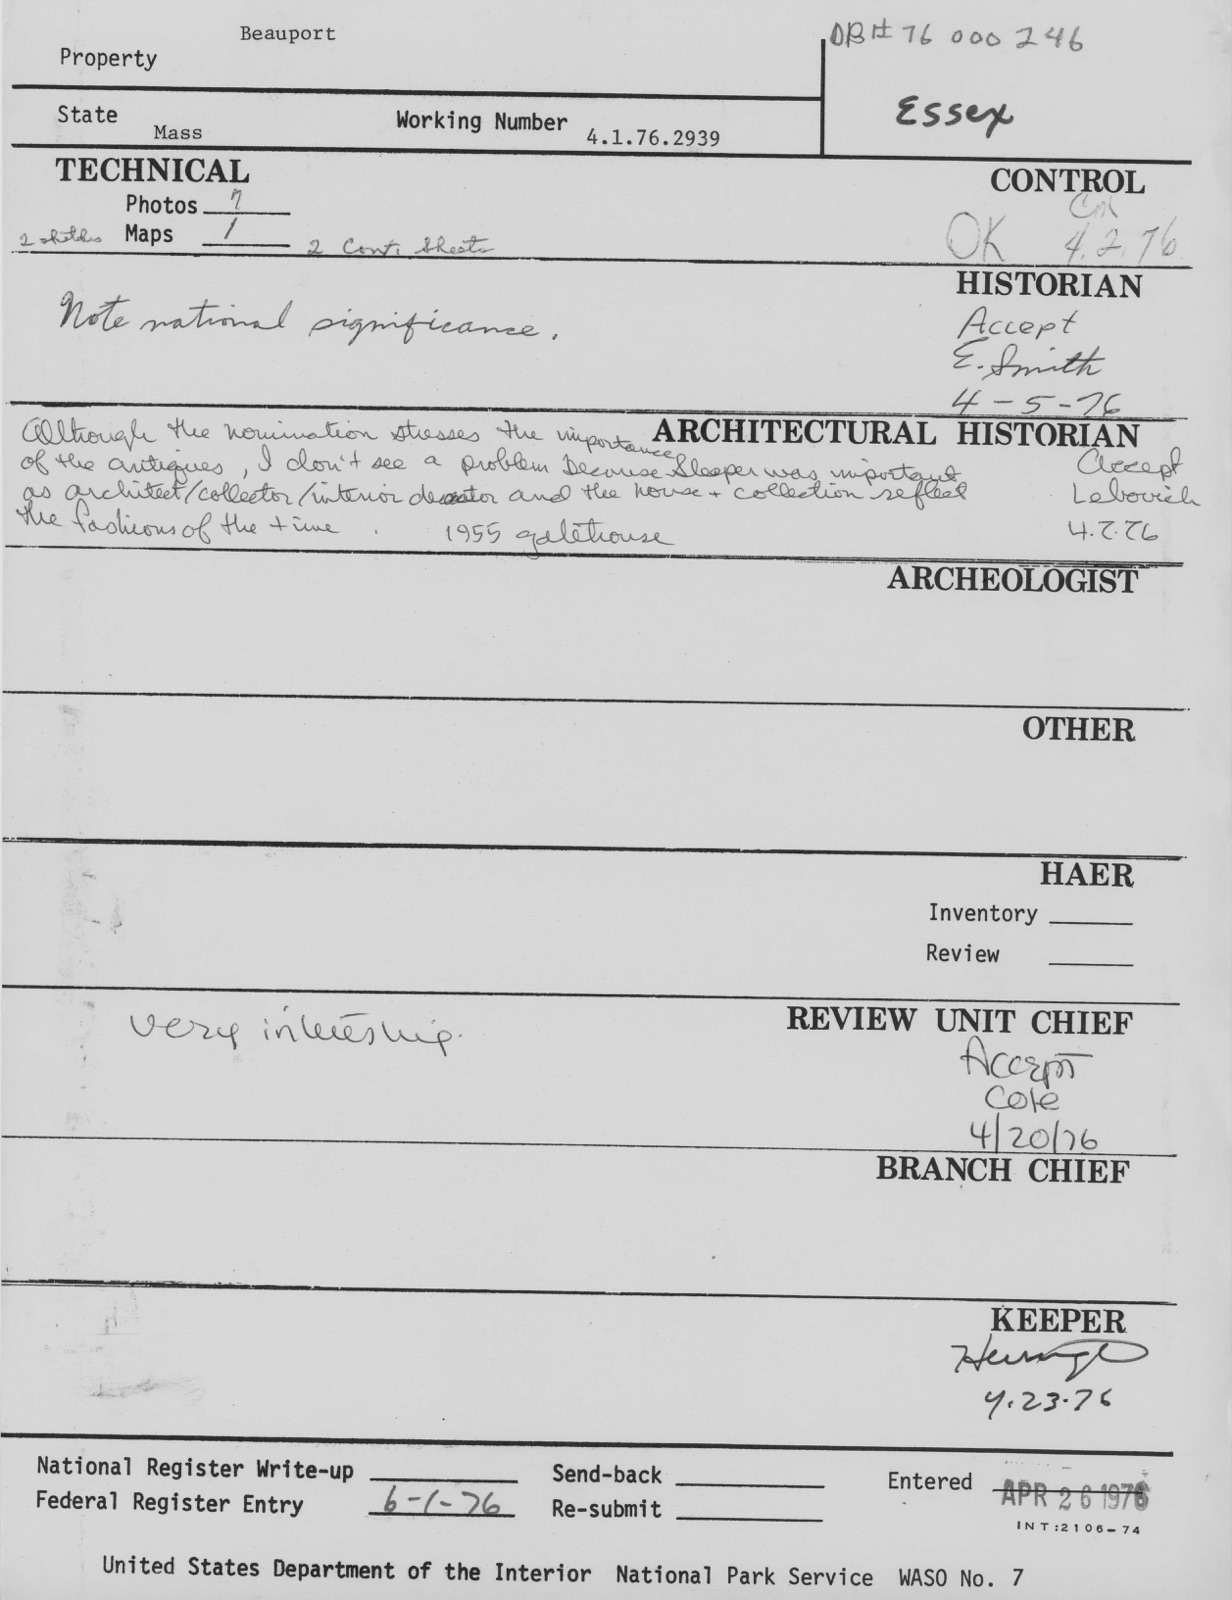 Beauport
DB# 76 000 246
Property
Essex
State
Mass
Working Number 4.1.76.2939
TECHNICAL
CONTROL
Photos 7
2 sketches Maps 1 2 Cont. Sheets
OK 4.2.76
HISTORIAN
Note national significance.
Accept
E. Smith
4-5-76
ARCHITECTURAL HISTORIAN
Although the nomination stresses the importance
of the antiques, I don't see a problem because Sleeper was important
as architect/collector/interior decorator and the house + collection reflect
the fashions of the time. 1955 gatehouse
Accept
Lebovich
4.7.76
ARCHEOLOGIST
OTHER
HAER
Inventory
Review
REVIEW UNIT CHIEF
very interesting.
Accept
Cole
4/20/76
BRANCH CHIEF
KEEPER
4.23.76
National Register Write-up
Send-back
Entered APR 26 1976
Federal Register Entry 6-1-76
Re-submit
INT:2106-74
United States Department of the Interior National Park Service WASO No. 7